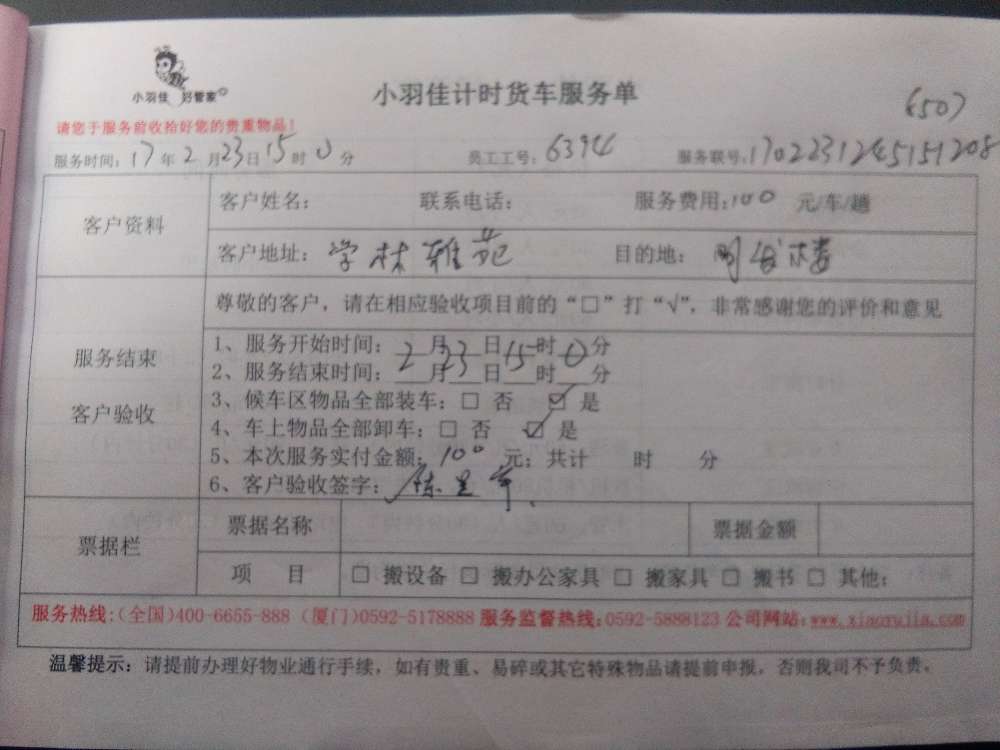 小羽佳 好管家
小羽佳计时货车服务单
6507
请您于服务前收拾好您的贵重物品!
服务时间:17年2月23日15时0分 员工工号:6394 服务联号:1702231245151208
客户资料 客户姓名: 联系电话: 服务费用:100 元/车/趟
客户地址:学林雅苑 目的地:明发楼
尊敬的客户，请在相应验收项目前的“□”打“√”，非常感谢您的评价和意见
服务结束
客户验收
1、服务开始时间:2月23日15时0分
2、服务结束时间:___月___日___时___分
3、候车区物品全部装车:□ 否 ☑ 是
4、车上物品全部卸车:□ 否 ☑ 是
5、本次服务实付金额:100 元;共计 时 分
6、客户验收签字:陈
票据栏 票据名称 票据金额
项 目 □ 搬设备 □ 搬办公家具 □ 搬家具 □ 搬书 □ 其他:
服务热线:(全国)400-6655-888 (厦门)0592-5178888 服务监督热线:0592-5888123 公司网站:www.xiaoyujia.com
温馨提示：请提前办理好物业通行手续，如有贵重、易碎或其它特殊物品请提前申报，否则我司不予负责。